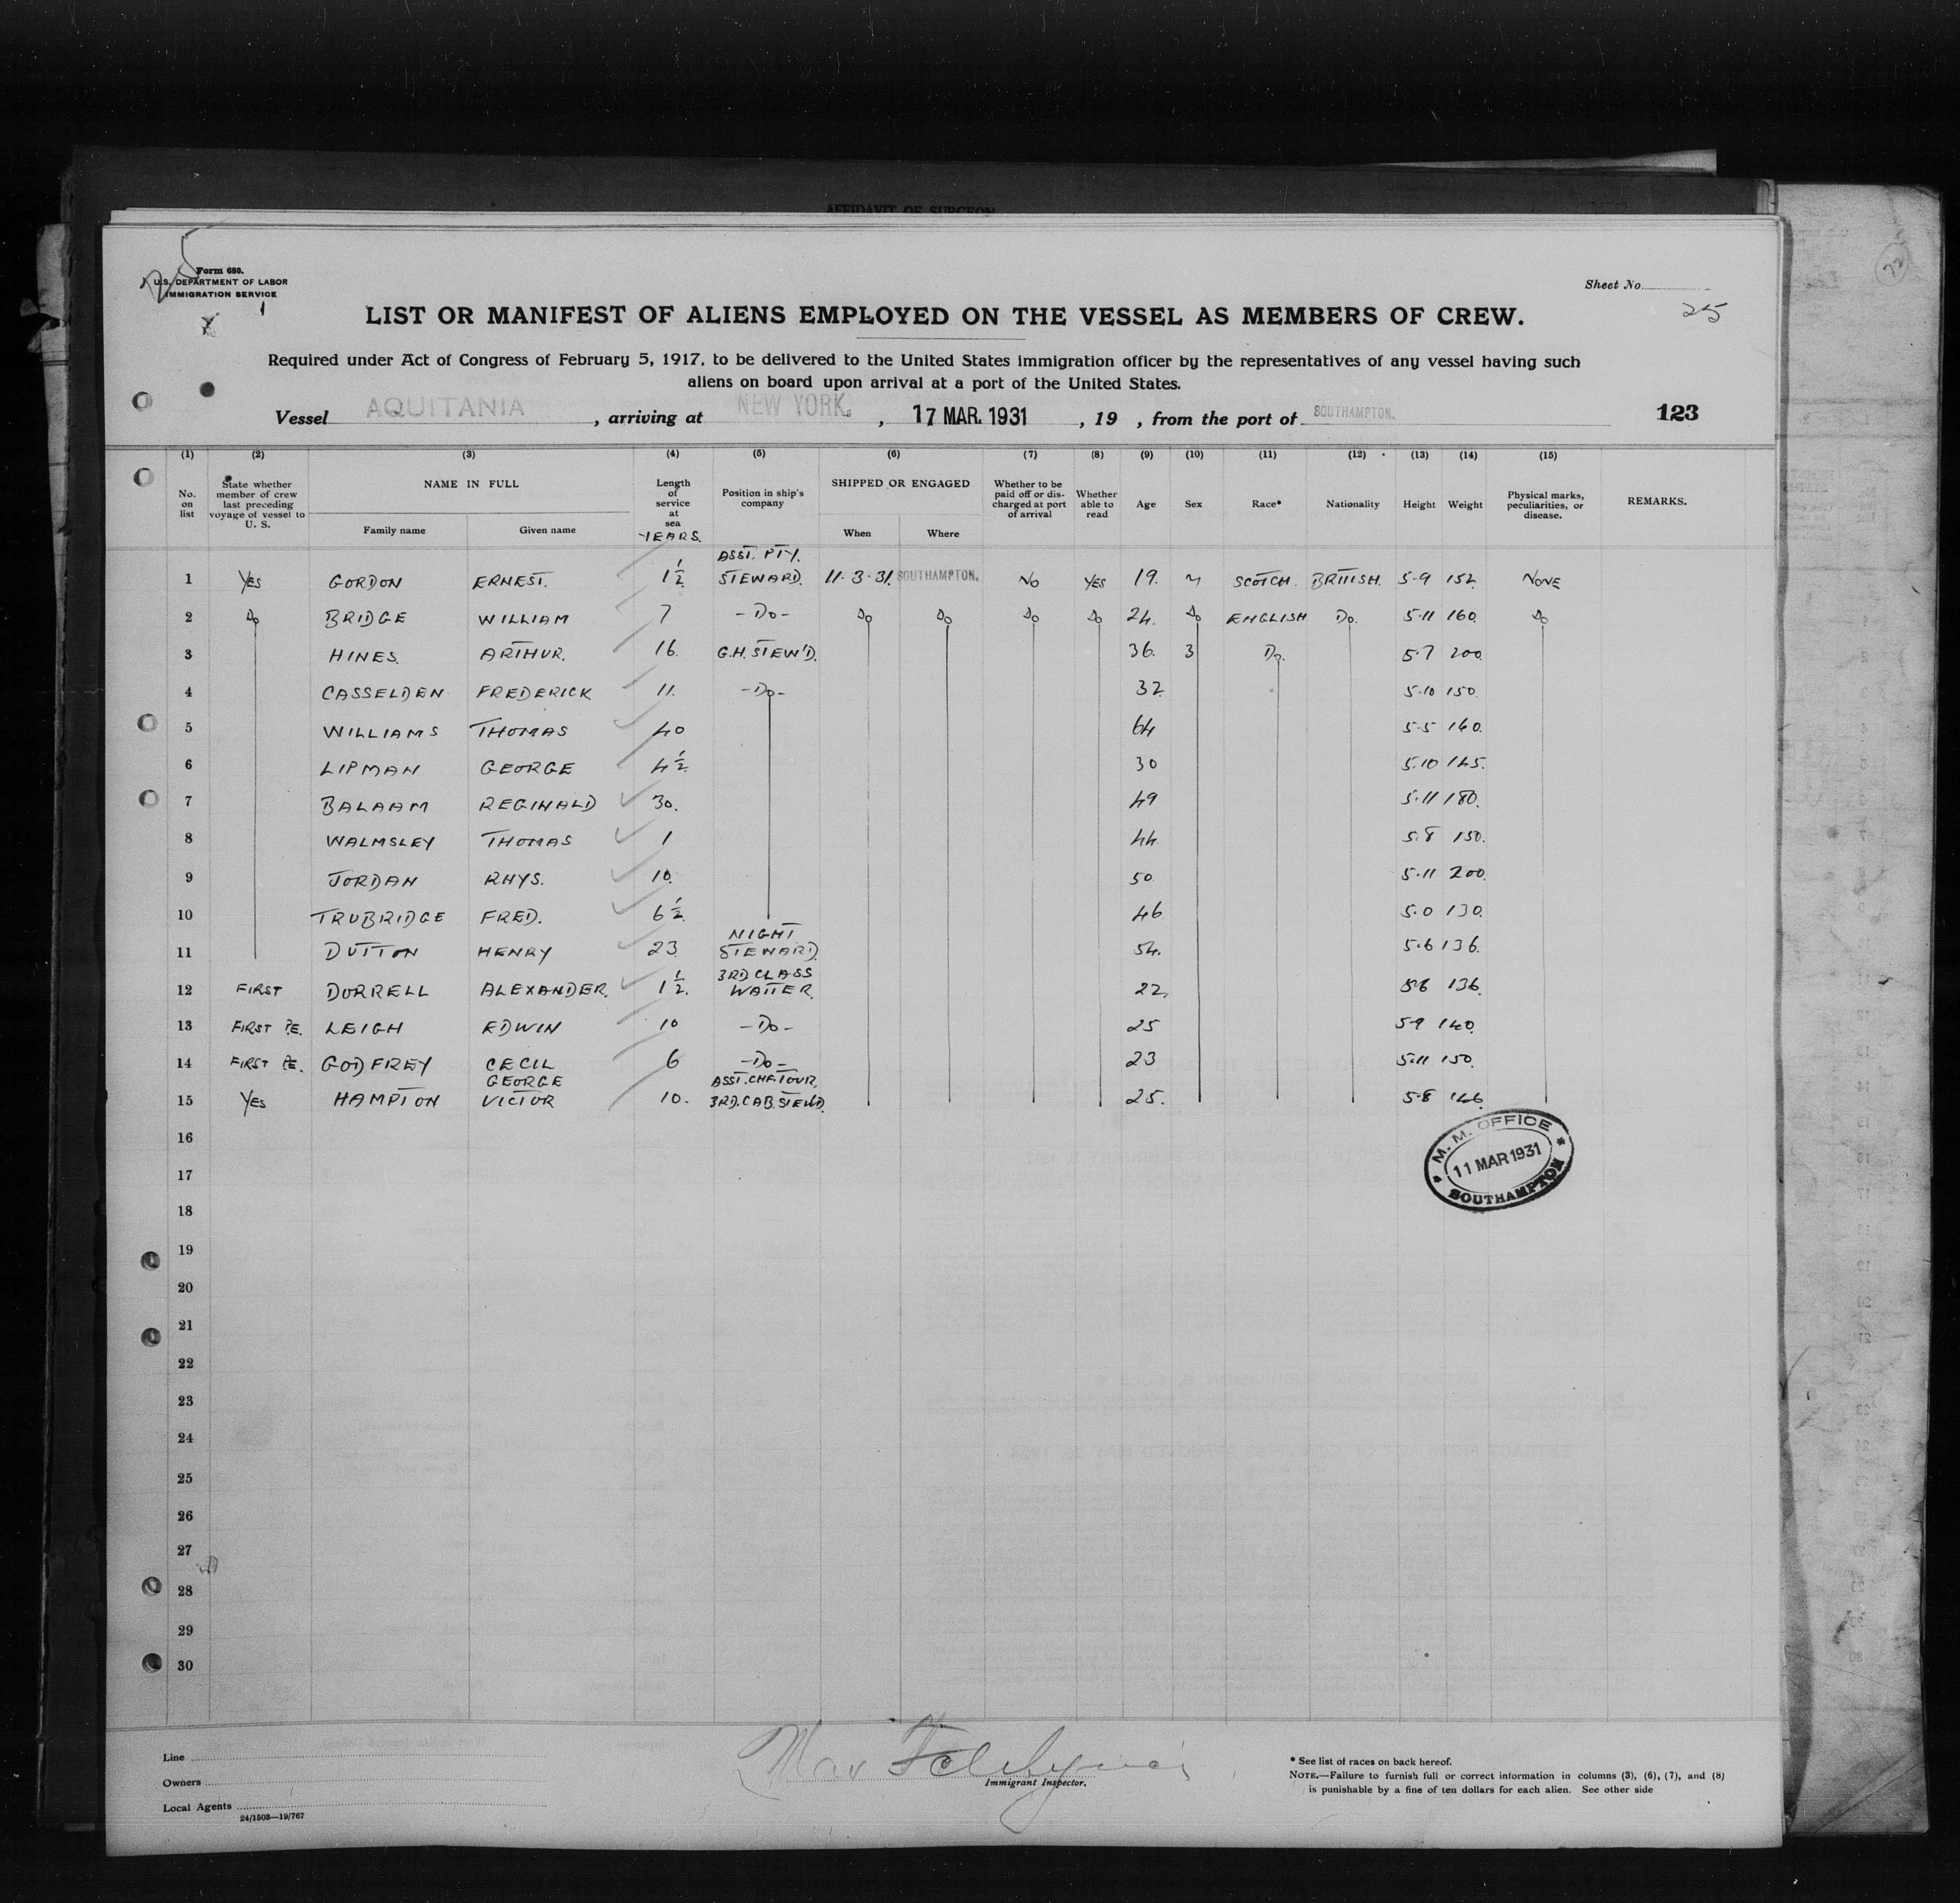 AFFIDAVIT OF SURGEON
25
Form 680.
U.S. DEPARTMENT OF LABOR
IMMIGRATION SERVICE
Sheet No.
25
LIST OR MANIFEST OF ALIENS EMPLOYED ON THE VESSEL AS MEMBERS OF CREW.
Required under Act of Congress of February 5, 1917, to be delivered to the United States immigration officer by the representatives of any vessel having such
aliens on board upon arrival at a port of the United States.
Vessel AQUITANIA , arriving at NEW YORK. , 17 MAR. 1931 , 19 , from the port of SOUTHAMPTON. 123
(1) (2) (3) (4) (5) (6) (7) (8) (9) (10) (11) (12) (13) (14) (15)
No. on list State whether member of crew last preceding voyage of vessel to U. S. NAME IN FULL Family name Given name Length of service at sea YEARS. Position in ship's company SHIPPED OR ENGAGED When Where Whether to be paid off or discharged at port of arrival Whether able to read Age Sex Race* Nationality Height Weight Physical marks, peculiarities, or disease. REMARKS.
1 YES GORDON ERNEST. 1½ ASST. PTY. STEWARD. 11.3.31. SOUTHAMPTON. NO YES 19. M SCOTCH. BRITISH. 5-9 152. NONE
2 Do BRIDGE WILLIAM 7 -Do- Do Do Do Do 24. Do ENGLISH Do. 5-11 160. Do
3 HINES. ARTHUR. 16. G.H. STEW'D. 36. 3 Do. 5-7 200.
4 CASSELDEN FREDERICK 11. -Do- 32 5-10 150.
5 WILLIAMS THOMAS 40 64 5-5 140.
6 LIPMAN GEORGE 4½ 30 5.10 145.
7 BALAAM REGINALD 30. 49 5.11 180.
8 WALMSLEY THOMAS 1 44 5.8 150.
9 JORDAN RHYS. 10. 50 5.11 200.
10 TRUBRIDGE FRED. 6½ 46 5.0 130.
11 DUTTON HENRY 23 NIGHT STEWARD. 54. 5.6 136.
12 FIRST DORRELL ALEXANDER. 1½. 3RD CLASS WAITER. 22. 5.6 136.
13 FIRST P.E. LEIGH EDWIN 10 -Do- 25 5-9 140.
14 FIRST P.E. GODFREY CECIL 6 -Do- 23 5-11 150.
15 YES HAMPTON GEORGE VICTOR 10. ASST. CHF. TOUR. 3RD. CAB. STEWD. 25. 5-8 146.
M. M. OFFICE
11 MAR 1931
SOUTHAMPTON
16
17
18
19
20
21
22
23
24
25
26
27
28
29
30
Line
Owners
Local Agents
24/1503—19/767
Max
Immigrant Inspector.
* See list of races on back hereof.
NOTE.—Failure to furnish full or correct information in columns (3), (6), (7), and (8)
is punishable by a fine of ten dollars for each alien. See other side